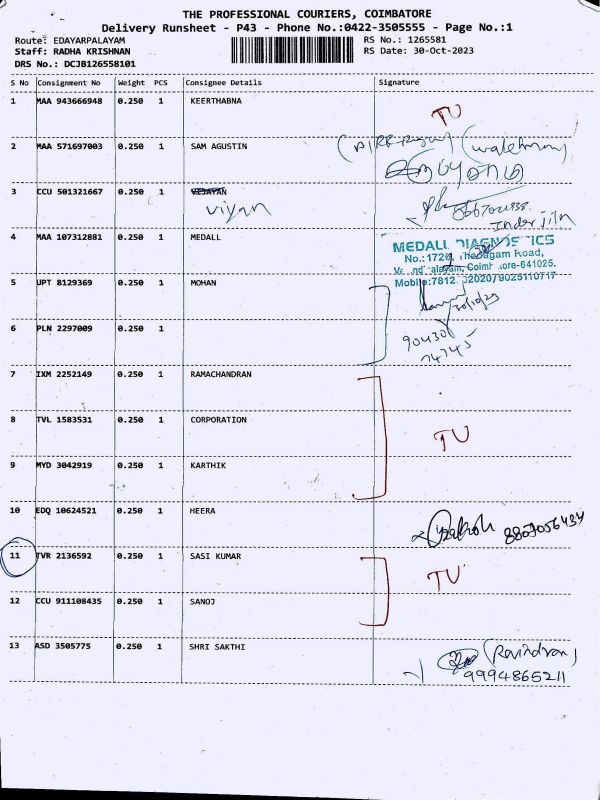 THE PROFESSIONAL COURIERS, COIMBATORE
Delivery Runsheet - P43 - Phone No.:0422-3505555 - Page No.:1
Route: EDAYARPALAYAM
RS No.: 1265581
Staff: RADHA KRISHNAN
RS Date: 30-Oct-2023
DRS No.: DCJB126558101
S No Consignment No Weight PCS Consignee Details Signature
1 MAA 943666948 0.250 1 KEERTHABNA TU
2 MAA 571697003 0.250 1 SAM AGUSTIN
3 CCU 501321667 0.250 1 VIJAYAN
Viyan
4 MAA 107312881 0.250 1 MEDALL
MEDALL DIAGNOSTICS
5 UPT 8129369 0.250 1 MOHAN
30/10/23
6 PLN 2297009 0.250 1
90430
74745
7 IXM 2252149 0.250 1 RAMACHANDRAN
8 TVL 1583531 0.250 1 CORPORATION TU
9 MYD 3042919 0.250 1 KARTHIK
10 EDQ 10624521 0.250 1 HEERA
11 TVR 2136592 0.250 1 SASI KUMAR TU
12 CCU 911108435 0.250 1 SANOJ
13 ASD 3505775 0.250 1 SHRI SAKTHI (Ravindran)
9994865211